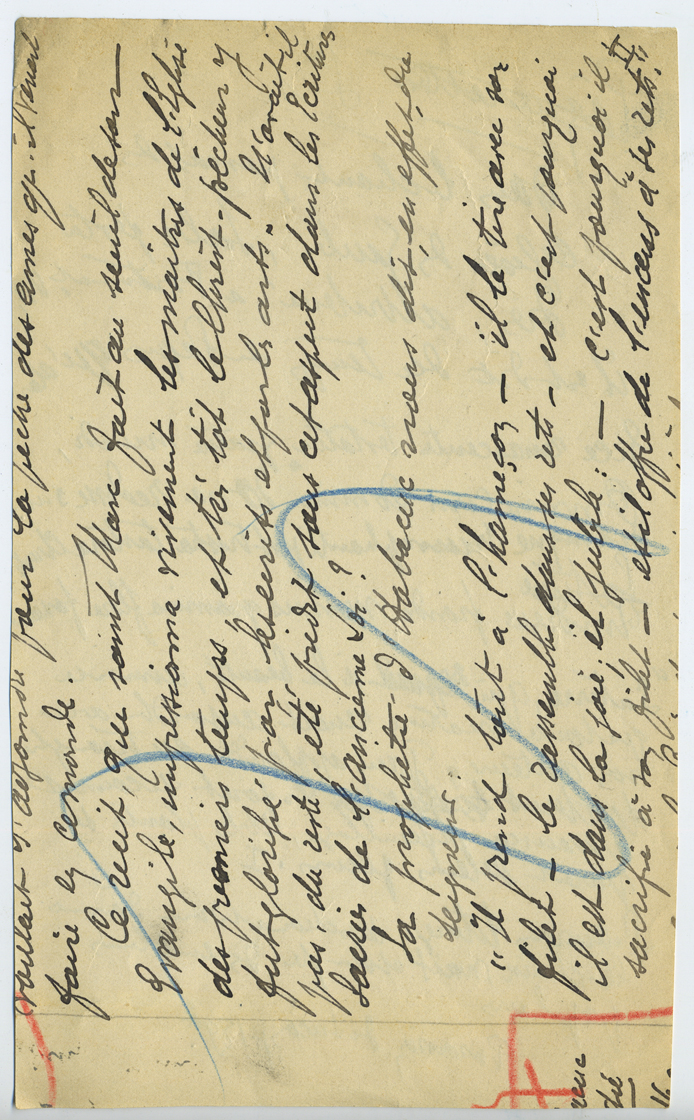 voulant s'adjoindre pour la pêche des âmes qu'il venait
faire ce monde
Ce récit, que saint Marc fait au seuil de son
Evangile, impressionna vivement les maîtres de l'Eglise
des premiers temps et très tôt le Christ-pêcheur y
fut glorifié par les écrits et par les arts. N'avait-il
pas, du reste, été prédit sous cet aspect dans les Ecritures
Sacrées de l'ancienne Loi?
La prophétie d'Habacuc nous dit, en effet, du
Seigneur:
"Il prend tout à l'hameçon — il le tire avec son
filet — le rassemble dans ses rets — et c'est pourquoi
il est dans la joie, et jubile; — c'est pourquoi il
sacrifie à son filet — et il offre de l'encens à ses rets."
II